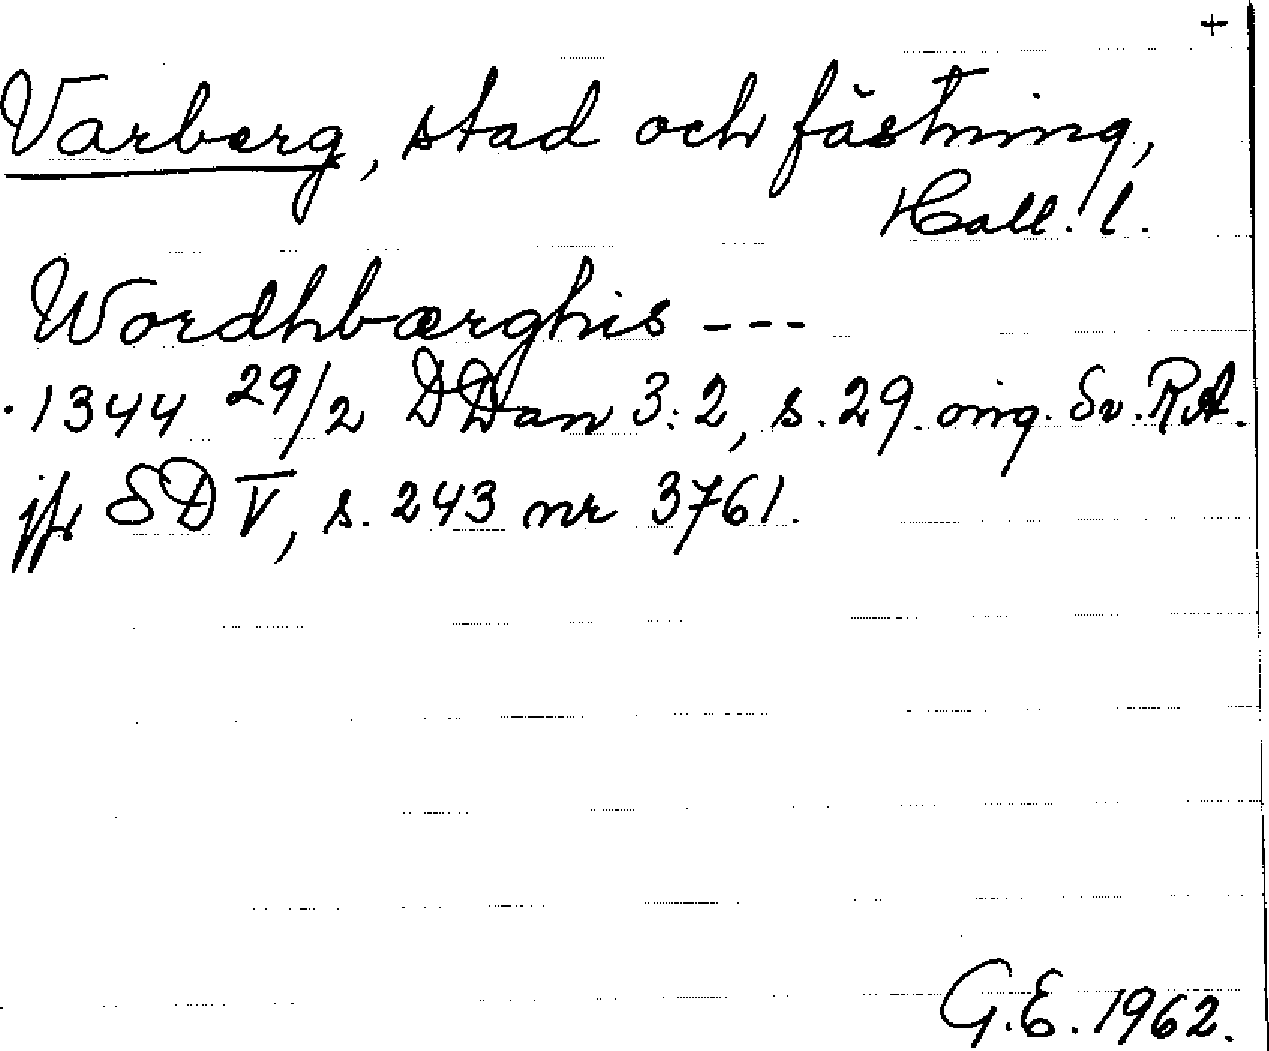 +
Varberg, stad och fästning,
Hall. l.
Wordhbærghis ---
1344 29/2 DDan 3:2, s. 29. orig. Sv. RA.
jfr SD V, s. 243 nr 3761.
G.E. 1962.